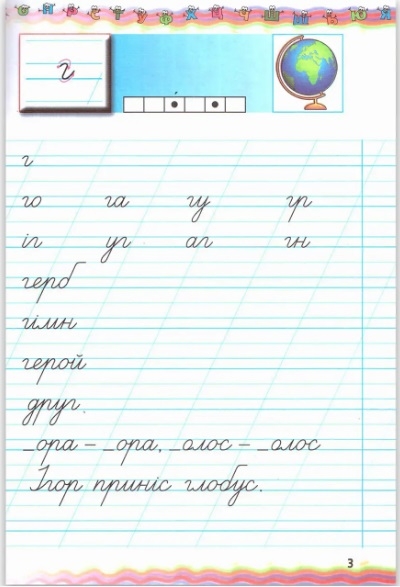 г
г
го га гу гр
іг уг аг гн
герб
гімн
герой
друг.
_ора – _ора, _олос – _олос
Ігор приніс глобус.
3